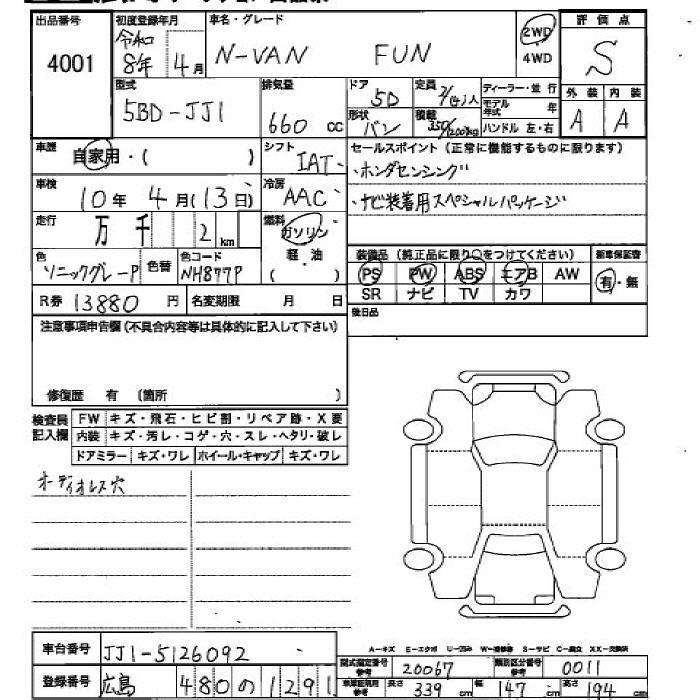 出品番号 初度登録年月 車名・グレード 評価点
4001 令和 8年 4月 N-VAN FUN 2WD 4WD S
型式 排気量 ドア 5D 定員 2/(4)人 ディーラー・並行 外装 内装
5BD-JJ1 660 cc 形状 バン 積載 350/200kg モデル年式 年 ハンドル 左・右 A A
車歴 自家用・( ) シフト IAT セールスポイント(正常に機能するものに限ります)
・ホンダセンシング
車検 10年 4月(13日) 冷房 AAC ・ナビ装着用スペシャルパッケージ
走行 万 千 2km 燃料 ガソリン 軽・油 ( )
色 ソニックグレーP 色替 色コード NH877P 装備品(純正品に限り○をつけてください) 新車保証書
PS PW ABS エアB AW 有・無
R券 13880円 名変期限 月 日 SR ナビ TV カワ
注意事項申告欄(不具合内容等は具体的に記入して下さい) 後日品
修復歴 有 (箇所 )
検査員記入欄 FW キズ・飛石・ヒビ割・リペア跡・X要
内装 キズ・汚レ・コゲ・穴・スレ・ヘタリ・破レ
ドアミラー キズ・ワレ ホイール・キャップ キズ・ワレ
オーディオレス穴
A-キズ E-エクボ U-凹み W-補修跡 S-サビ C-腐食 XX-交換済
車台番号 JJ1-5126092 型式指定番号 参考 20067 類別区分番号 参考 0011
登録番号 広島 480 の 1291 車庫証明用 参考 長さ 339 cm 幅 147 cm 高さ 194 cm